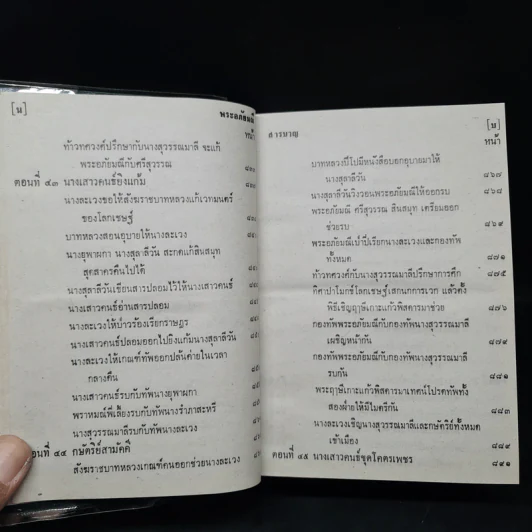 [น]
พระอภัยมณี
หน้า
ท้าวทศวงศ์ปรึกษากับนางสุวรรณมาลี จะแก้
พระอภัยมณีกับศรีสุวรรณ
ตอนที่ ๔๓ นางเสาวคนธ์ยิงแก้ม
นางละเวงขอให้สังฆราชบาทหลวงแก้เวทมนตร์
ของโลกเชษฐ์
บาทหลวงสอนอุบายให้นางละเวง
นางยุพาผกา นางสุลาลีวัน สะกดแก้สินสมุท
สุดสาครคืนไปได้
นางสุลาลีวันเขียนสารปลอมไว้ให้นางเสาวคนธ์
นางเสาวคนธ์อ่านสารปลอม
นางละเวงให้บ่าวร้องเรียกราษฎร
นางเสาวคนธ์ปลอมออกไปยิงแก้มนางสุลาลีวัน
นางละเวงให้เกณฑ์ทัพออกปล้นค่ายในเวลา
กลางคืน
นางเสาวคนธ์รบกับทัพนางยุพาผกา
พราหมณ์พี่เลี้ยงรบกับทัพนางรำภาสะหรี
นางสุวรรณมาลีรบกับทัพนางละเวง
ตอนที่ ๔๔ กษัตริย์สามัคคี
สังฆราชบาทหลวงเกณฑ์คนออกช่วยนางละเวง
สารบาญ
[บ]
หน้า
บาทหลวงปีโปมีหนังสือบอกอุบายมาให้
นางสุลาลีวัน ๘๖๗
นางสุลาลีวันวิงวอนพระอภัยมณีให้ออกรบ ๘๖๘
พระอภัยมณี ศรีสุวรรณ สินสมุท เตรียมออก
ช่วยรบ ๘๖๙
พระอภัยมณีเป่าปี่เรียกนางละเวงและกองทัพ
ทั้งหมด ๘๗๑
ท้าวทศวงศ์กับนางสุวรรณมาลีปรึกษาการศึก ๘๗๕
ทิศาปาโมกข์โลกเชษฐ์เสกนกการเวก แล้วตั้ง
พิธีเชิญฤๅษีเกาะแก้วพิสดารมาช่วย ๘๗๖
กองทัพพระอภัยมณีกับกองทัพนางสุวรรณมาลี
เผชิญหน้ากัน
กองทัพพระอภัยมณีกับกองทัพนางสุวรรณมาลี
รบกัน ๘๘๑
พระฤๅษีเกาะแก้วพิสดารมาเทศน์โปรดทัพทั้ง
สองฝ่ายให้มีไมตรีกัน ๘๘๓
นางละเวงเชิญนางสุวรรณมาลีและกษัตริย์ทั้งหมด
เข้าเมือง ๘๘๙
ตอนที่ ๔๕ นางเสาวคนธ์ขุดโคตรเพชร ๘๙๑